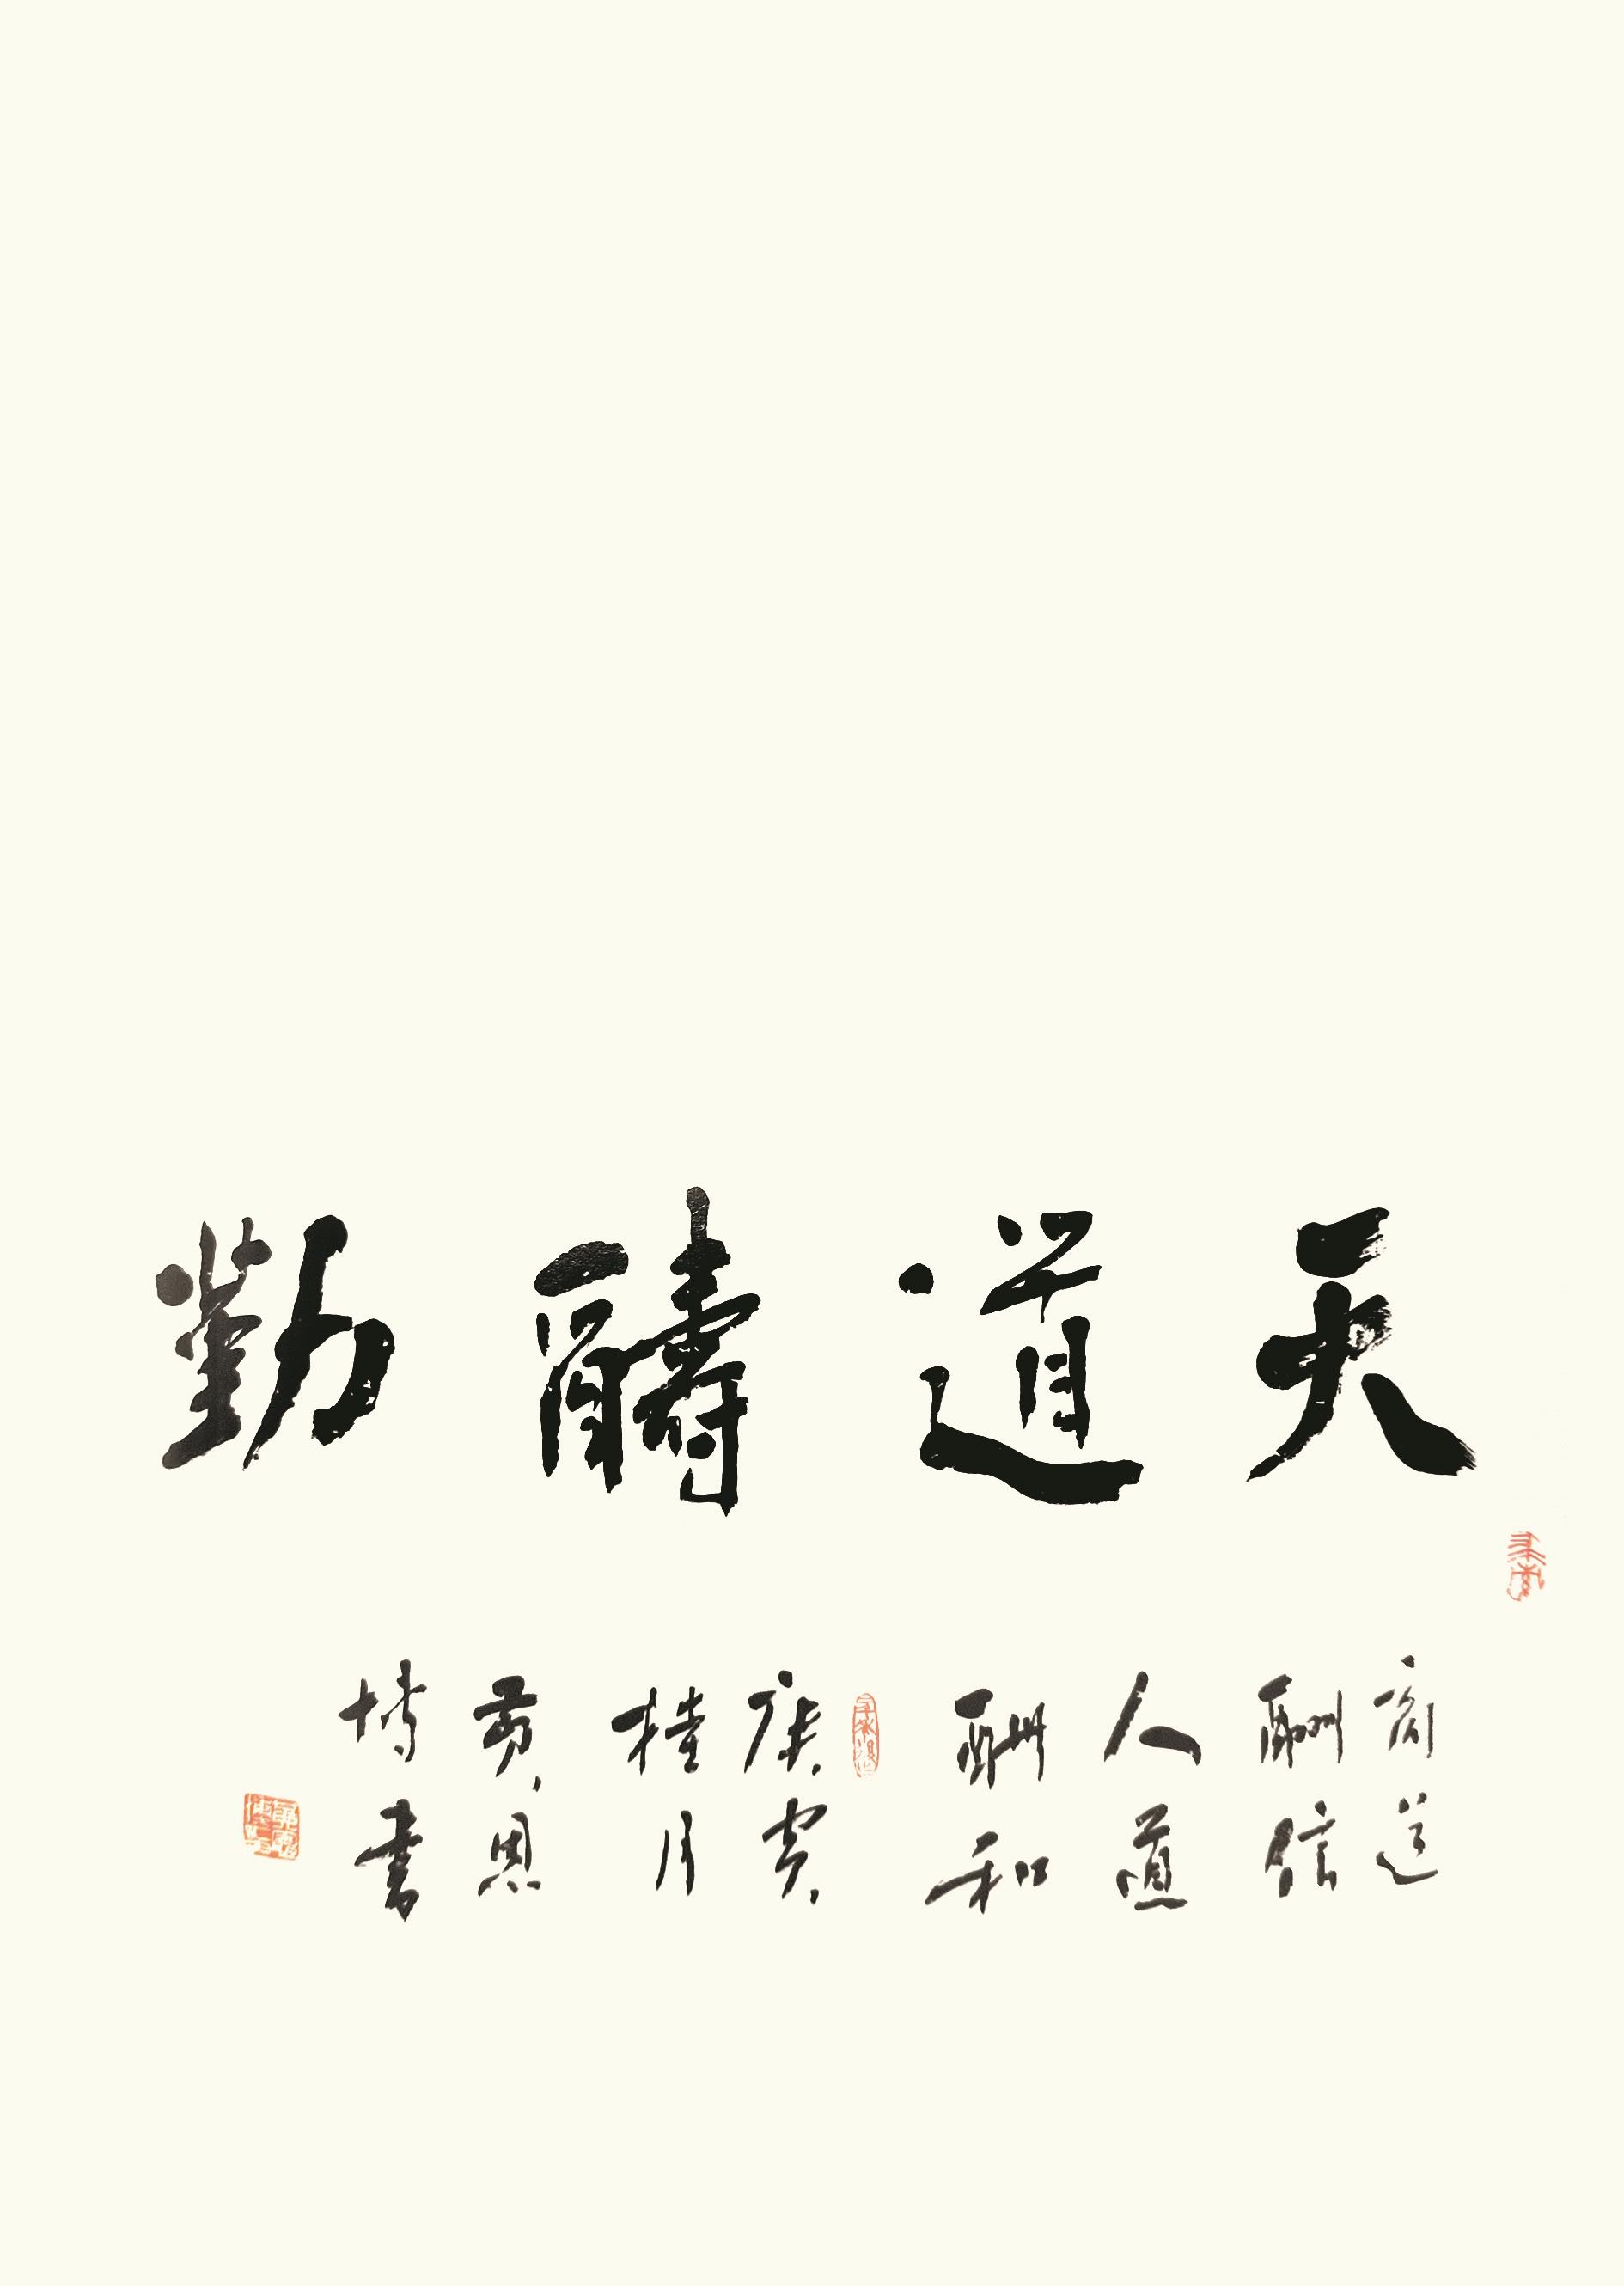 天道酬勤
商道
酬信
人道
酬和
桂月
恩
博書